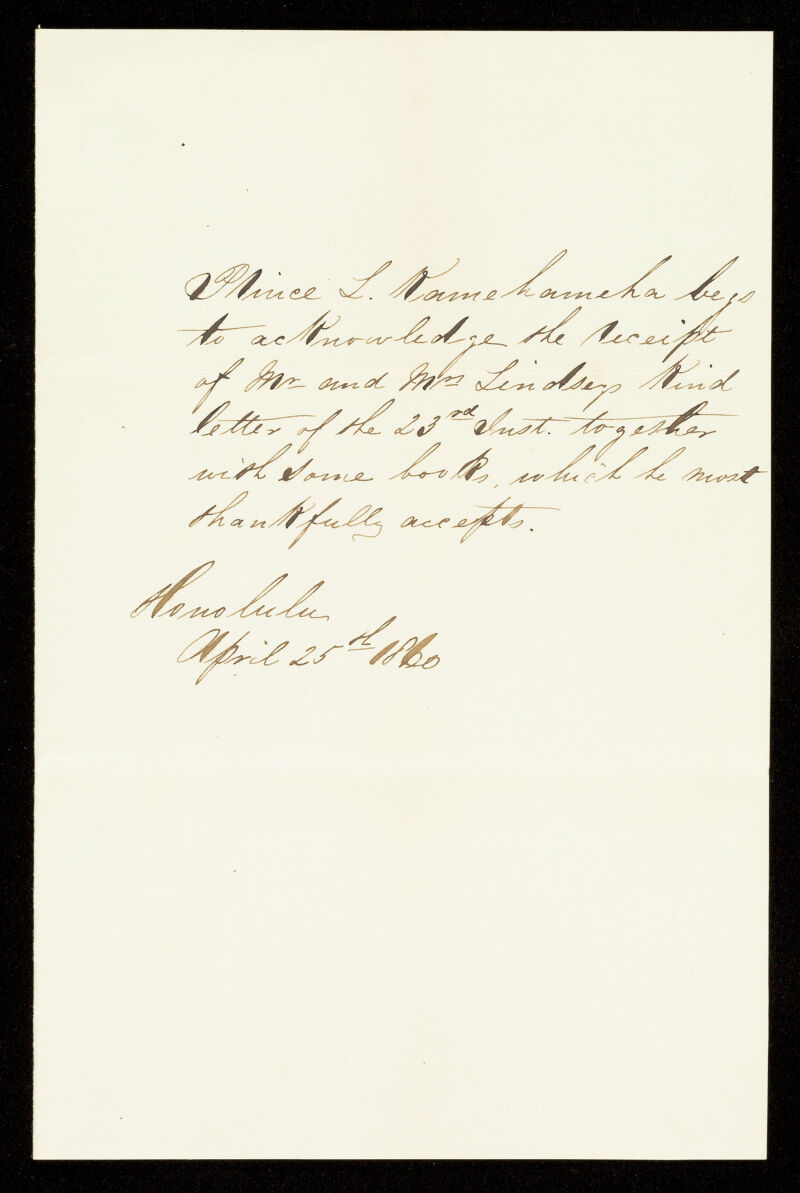 Prince L. Kamehameha begs
to acknowledge the receipt
of Mr and Mrs Lindseys kind
letter of the 23rd Inst. together
with some books, which he most
thankfully accepts.
Honolulu
April 25th 1860